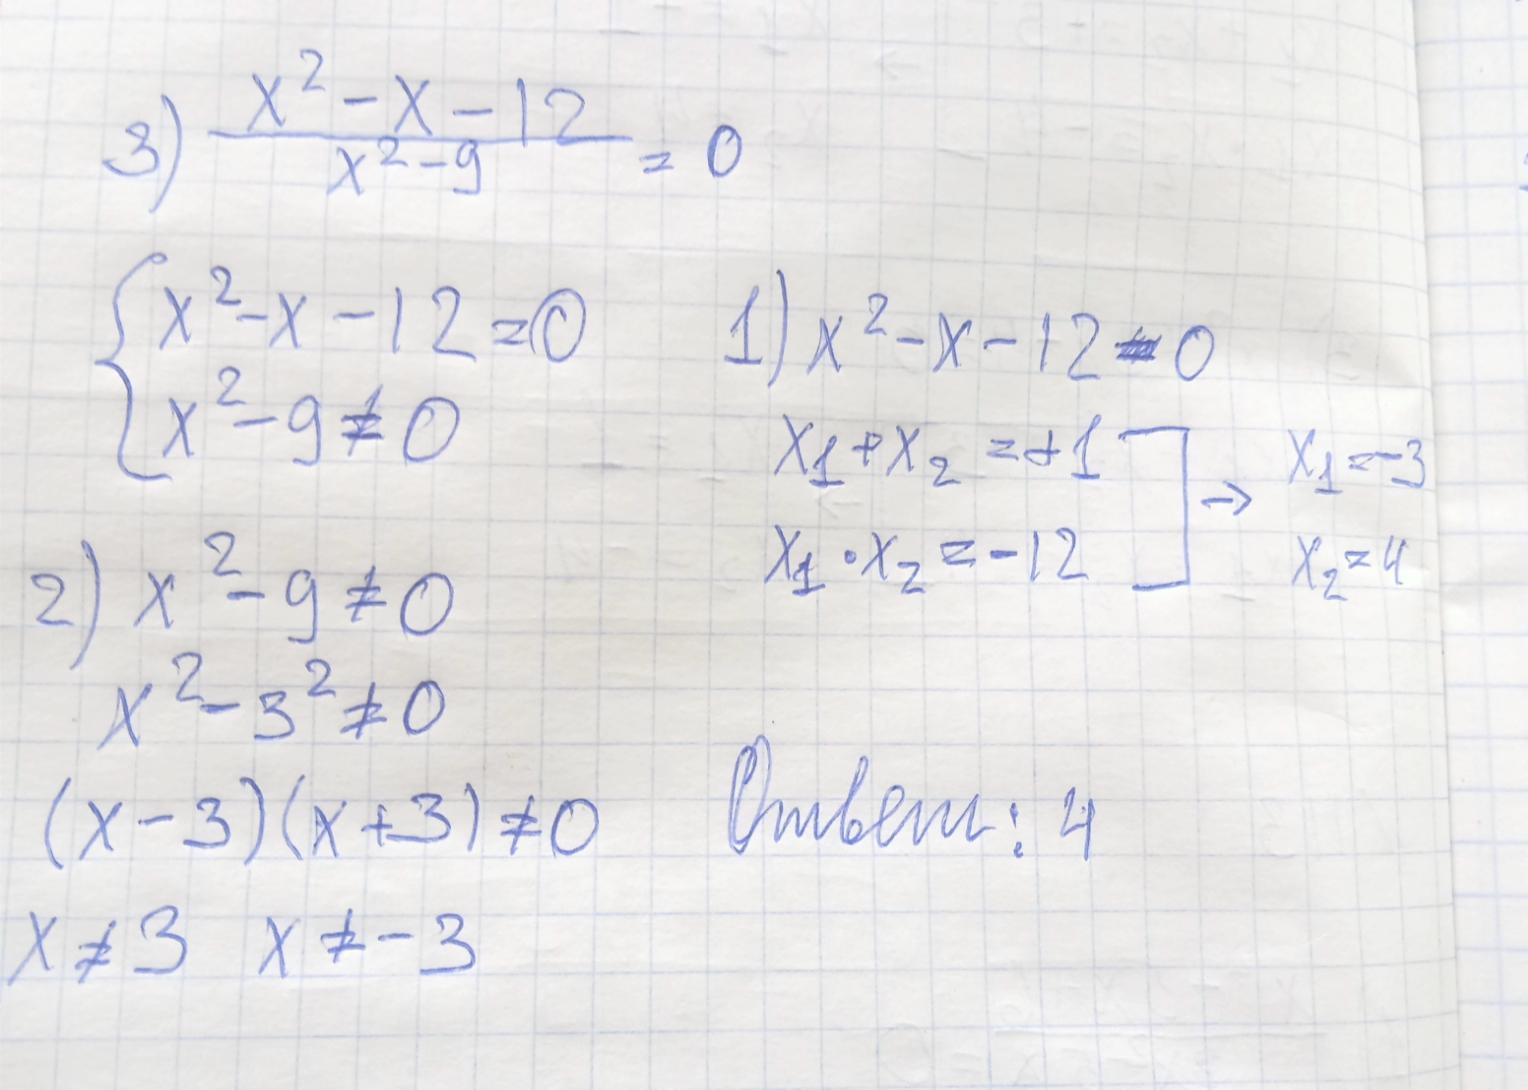 3) (x² - x - 12)/(x² - 9) = 0
{ x² - x - 12 = 0
x² - 9 ≠ 0
1) x² - x - 12 = 0
x₁ + x₂ = +1
x₁ · x₂ = -12
→ x₁ = -3
x₂ = 4
2) x² - 9 ≠ 0
x² - 3² ≠ 0
(x - 3)(x + 3) ≠ 0
x ≠ 3 x ≠ -3
Ответ: 4